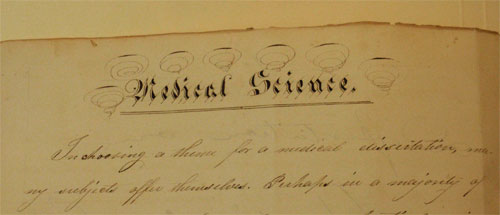 Medical Science.
In choosing a theme for a medical dissertation, ma-
ny subjects offer themselves. Perhaps in a majority of